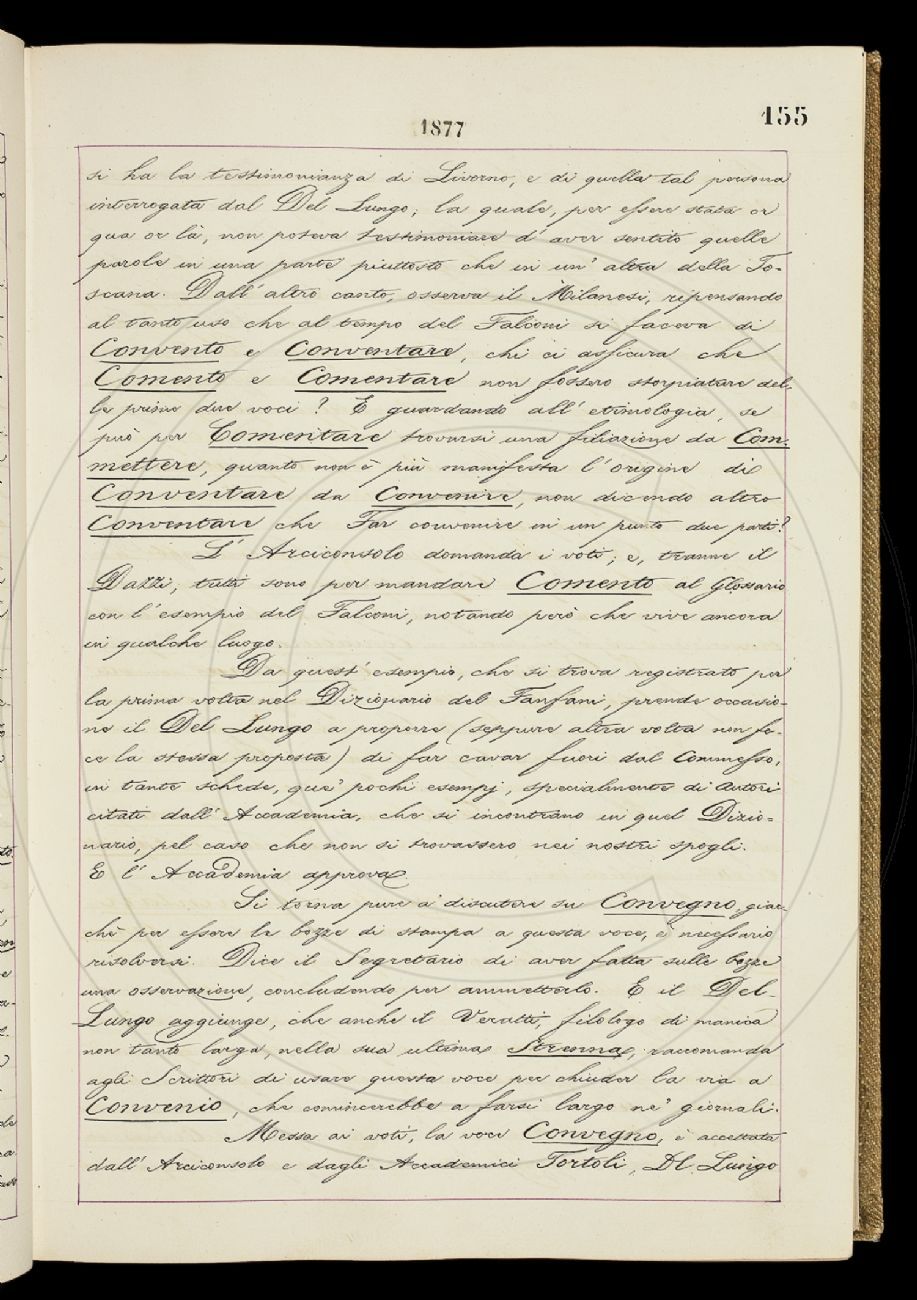 1877
155
si ha la testimonianza di Livorno, e di quella tal persona
interrogata dal Del Lungo; la quale, per essere stata or
qua or là, non poteva testimoniare d'aver sentito quelle
parole in una parte piuttosto che in un'altra della To-
scana. Dall'altro canto, osserva il Milanesi, ripensando
al tanto uso che al tempo del Falconi si faceva di
Convento e Conventare, chi ci assicura che
Comento e Comentare non fossero storpiature del-
le prime due voci? E guardando all'etimologia, se
può per Comentare trovarsi una filiazione da Com-
mettere, quanto non è più manifesta l'origine di
Conventare da Convenire, non dicendo altro
Conventare che Far convenire in un punto due parti?
L'Arciconsolo domanda i voti; e, tranne il
Dazzi, tutti sono per mandare Comento al Glossario
con l'esempio del Falconi, notando però che vive ancora
in qualche luogo.
Da quest'esempio, che si trova registrato per
la prima volta nel Dizionario del Fanfani, prende occasio-
ne il Del Lungo a proporre (seppure altra volta non fe-
ce la stessa proposta) di far cavar fuori dal Commesso,
in tante schede, que' pochi esempj, specialmente di autori
citati dall'Accademia, che si incontrano in quel Dizio-
nario, pel caso che non si trovassero nei nostri spogli.
E l'Accademia approva.
Si torna pure a discutere su Convegno, giac-
chè per essere le bozze di stampa a questa voce, è necessario
risolversi. Dice il Segretario di aver fatta sulle bozze
una osservazione, concludendo per ammetterlo. E il Del-
Lungo aggiunge, che anche il Veratti, filologo di manica
non tanto larga, nella sua ultima Strenna, raccomanda
agli Scrittori di usare questa voce per chiuder la via a
Convenio, che comincerebbe a farsi largo ne' giornali.
Messa ai voti, la voce Convegno, è accettata
dall'Arciconsolo e dagli Accademici Tortoli, Del Lungo